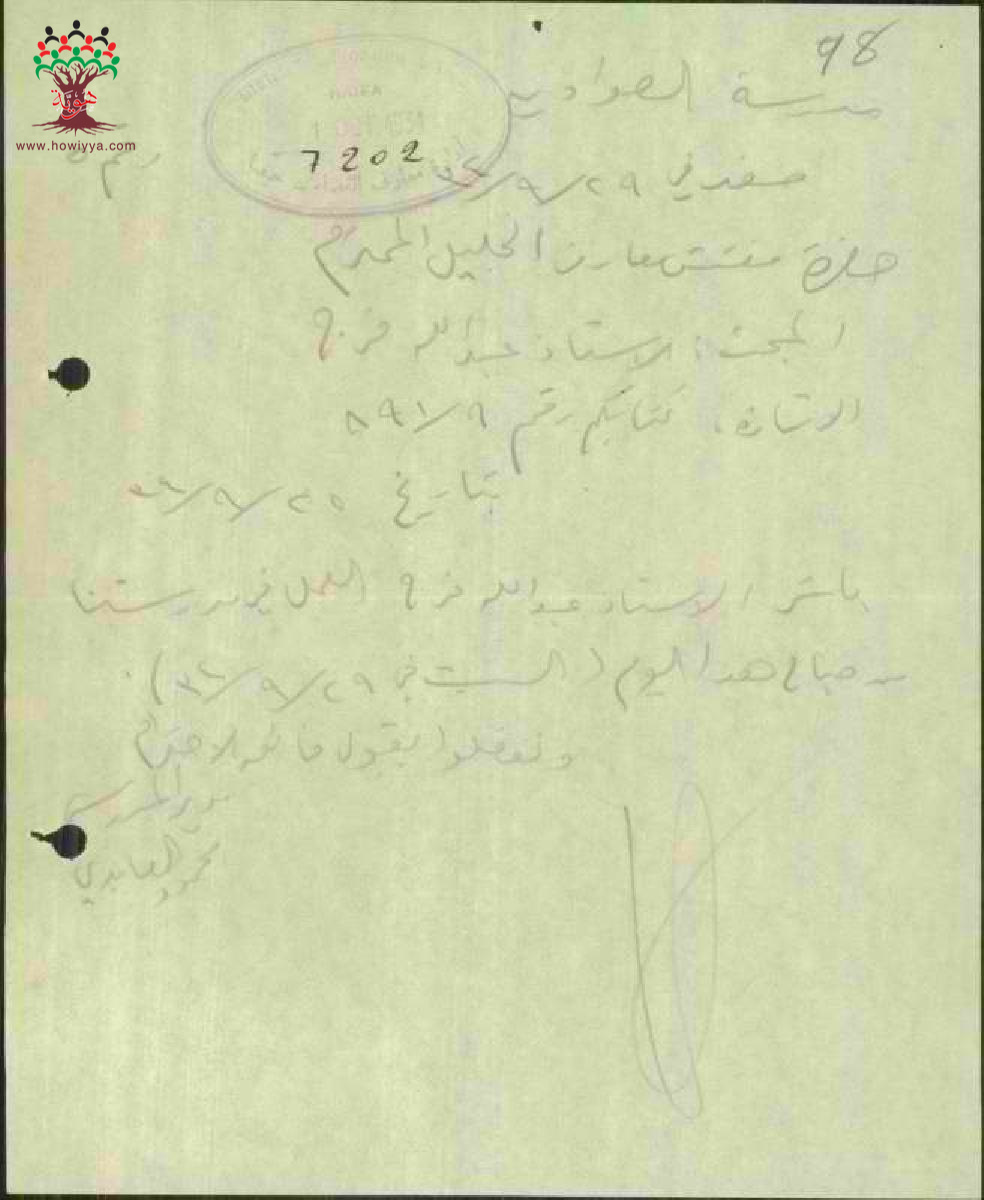 98
مدرسة الصوادين
7202
صفد في ٢٩/٩/٣٤
رقم ٥
حضرة مفتش معارف الجليل المحترم
المبحث: الاستاذ عبدالله فرح
الاشارة: كتابكم رقم ٨٩١/٩
بتاريخ ٢٥/٩/٣٤
باشر الاستاذ عبدالله فرح العمل في مدرستنا
صباح هذا اليوم (السبت في ٢٩/٩/٣٤).
وتفضلوا بقبول فائق الاحترام
مدير المدرسة
محمود العابدي
هوية
www.howiyya.com